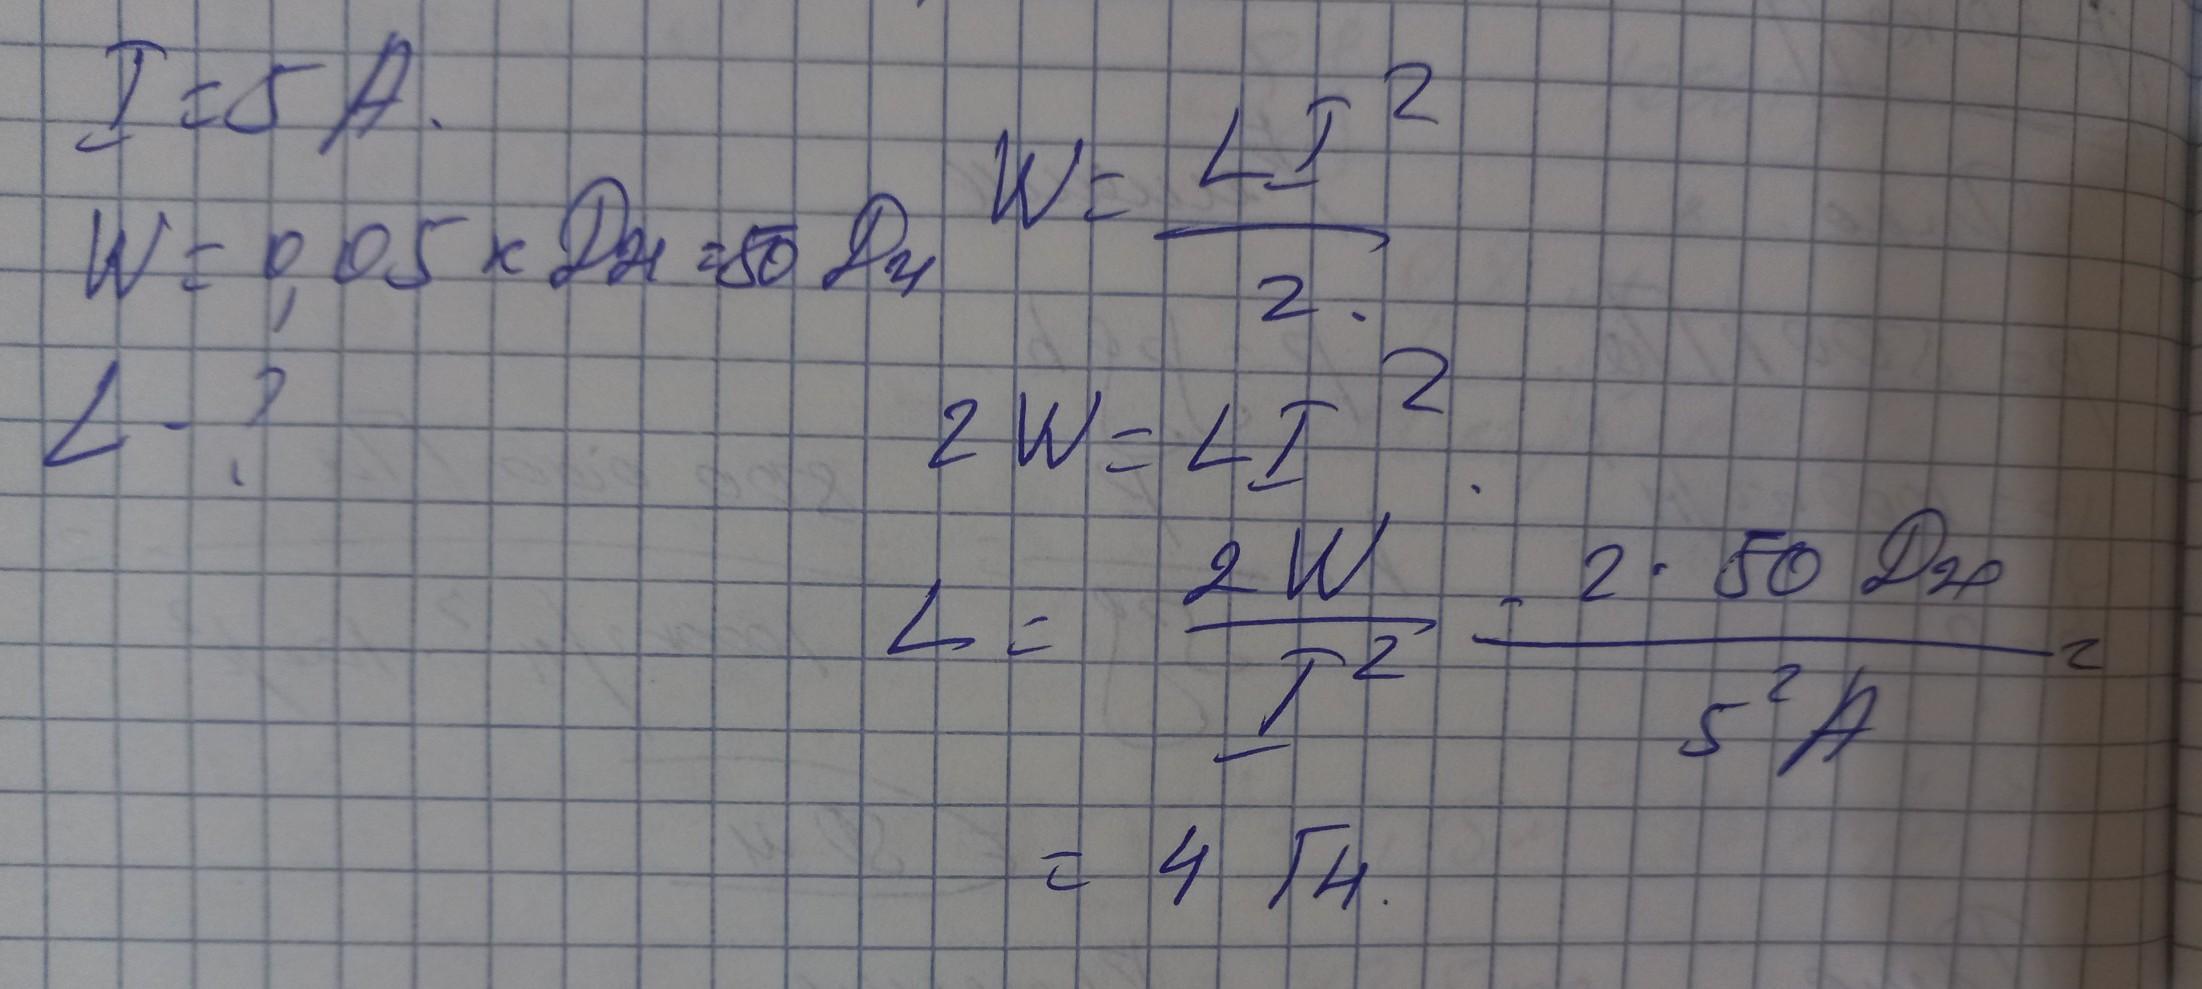 I = 5 А.
W = 0,05 к Дж = 50 Дж
L - ?
W = LI² / 2.
2W = LI².
L = 2W / I² = 2 · 50 Дж / 5² А =
= 4 Гн.